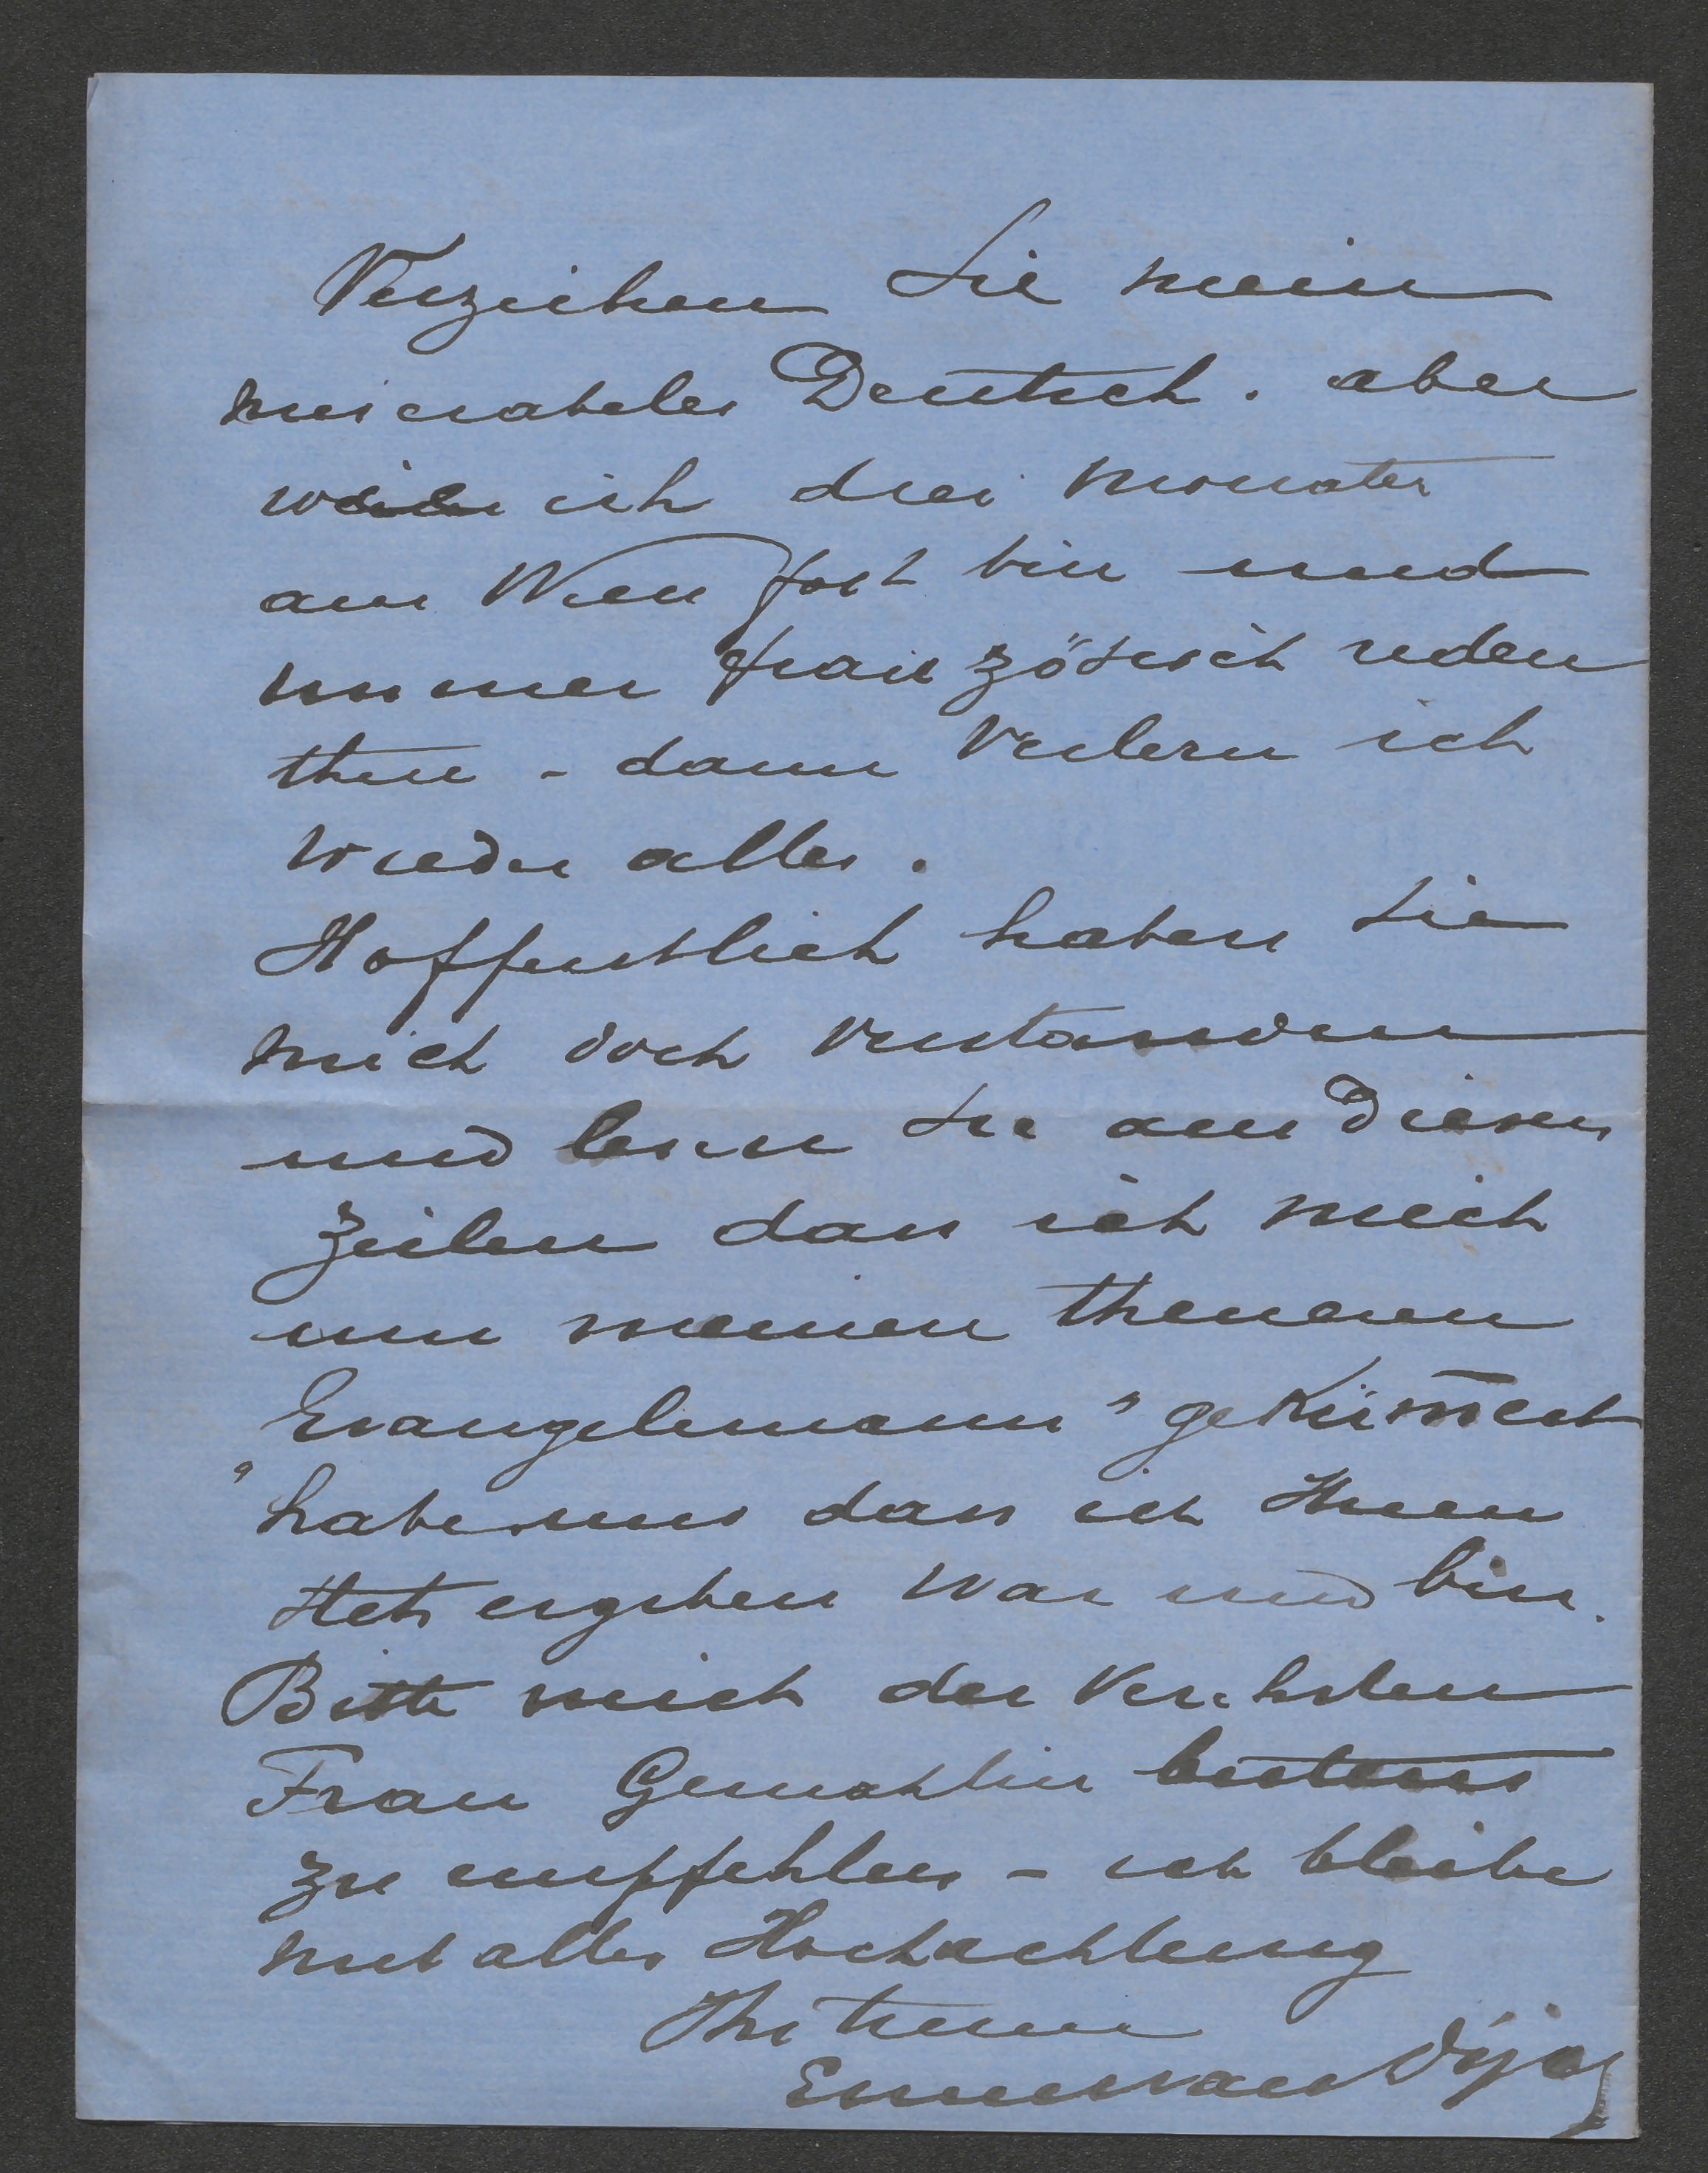 Verzeihen Sie mein
miserabeles Deutsch. aber
wenn ich drei Monate
aus Wien fort bin und
immer französisch reden
thue - dann verlern ich
wieder alles.
Hoffentlich haben Sie
mich doch verstanden
und lesen Sie aus diesen
Zeilen dass ich mich
um meinen theueren
"Evangelimann" gekümert
habe und dass ich Ihnen
stets ergeben war und bin.
Bitte mich der verehrten
Frau Gemahlin bestens
zu empfehlen - ich bleibe
mit aller Hochachtung
Ihr treuer
Ernest van Dyck